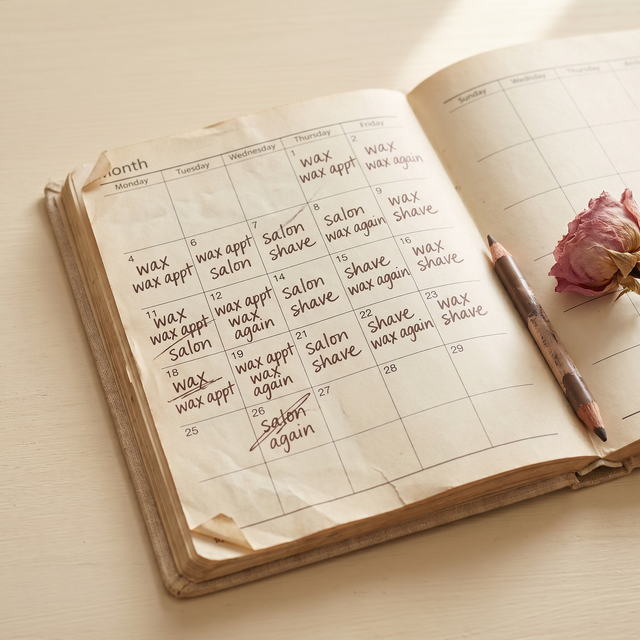 onth
Monday Tuesday Wednesday Thursday Friday
1 2
wax wax
wax appt wax again
4 6 7 8 9
wax wax appt salon salon wax
wax appt salon shave wax again shave
11 12 14 15 16
wax wax appt salon shave wax
wax appt wax shave wax again shave
salon again
18 19 21 22 23
wax wax appt salon shave wax
wax appt wax shave wax again shave
again
25 26 27 28 29
salon
again
Sunday Wednday Thursday